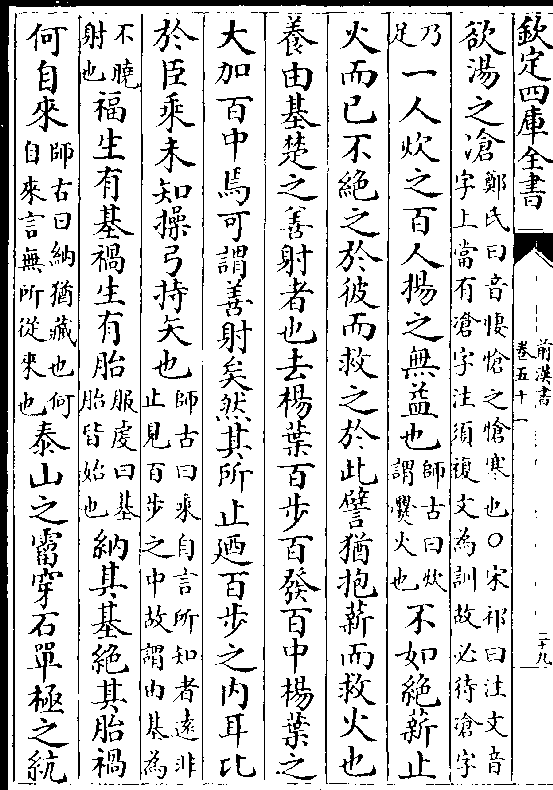 欽定四庫全書
前漢書
卷五十一
二十九
欲湯之凔鄭氏曰音悽愴之愴寒也○宋祁曰注文音
字上當有滄字注須複文為訓故必待滄字
乃
足一人炊之百人揚之無益也師古曰炊
謂㸑火也不如絕薪止
火而已不絕之於彼而救之於此譬猶抱薪而救火也
養由基楚之善射者也去楊葉百步百發百中楊葉之
大加百中焉可謂善射矣然其所止迺百步之內耳比
於臣乘未知操弓持矢也師古曰乘自言所知者遠非
止見百步之中故謂由基為
不曉
射也福生有基禍生有胎服虔曰基
胎皆始也納其基絕其胎禍
何自來師古曰納猶藏也何
自來言無所從來也泰山之霤穿石單極之統